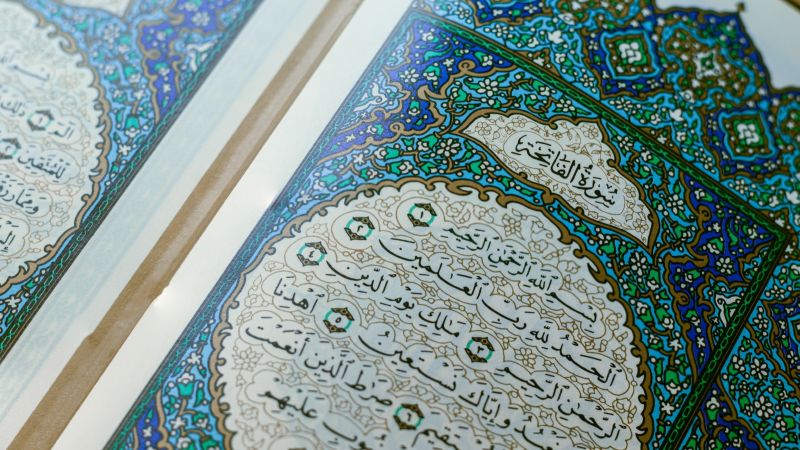 سُورَةُ الفَاتِحَة
بِسْمِ ٱللَّهِ ٱلرَّحْمَٰنِ ٱلرَّحِيمِ ١
ٱلْحَمْدُ لِلَّهِ رَبِّ ٱلْعَٰلَمِينَ ٢
ٱلرَّحْمَٰنِ ٱلرَّحِيمِ ٣ مَٰلِكِ يَوْمِ ٱلدِّينِ ٤
وَإِيَّاكَ نَسْتَعِينُ ٥ ٱهْدِنَا
صِرَٰطَ ٱلَّذِينَ أَنْعَمْتَ
عَلَيْهِمْ
بِسْمِ
الٓمٓ ١ ذَٰلِكَ
لِّلْمُتَّقِينَ ٢
وَمِمَّا